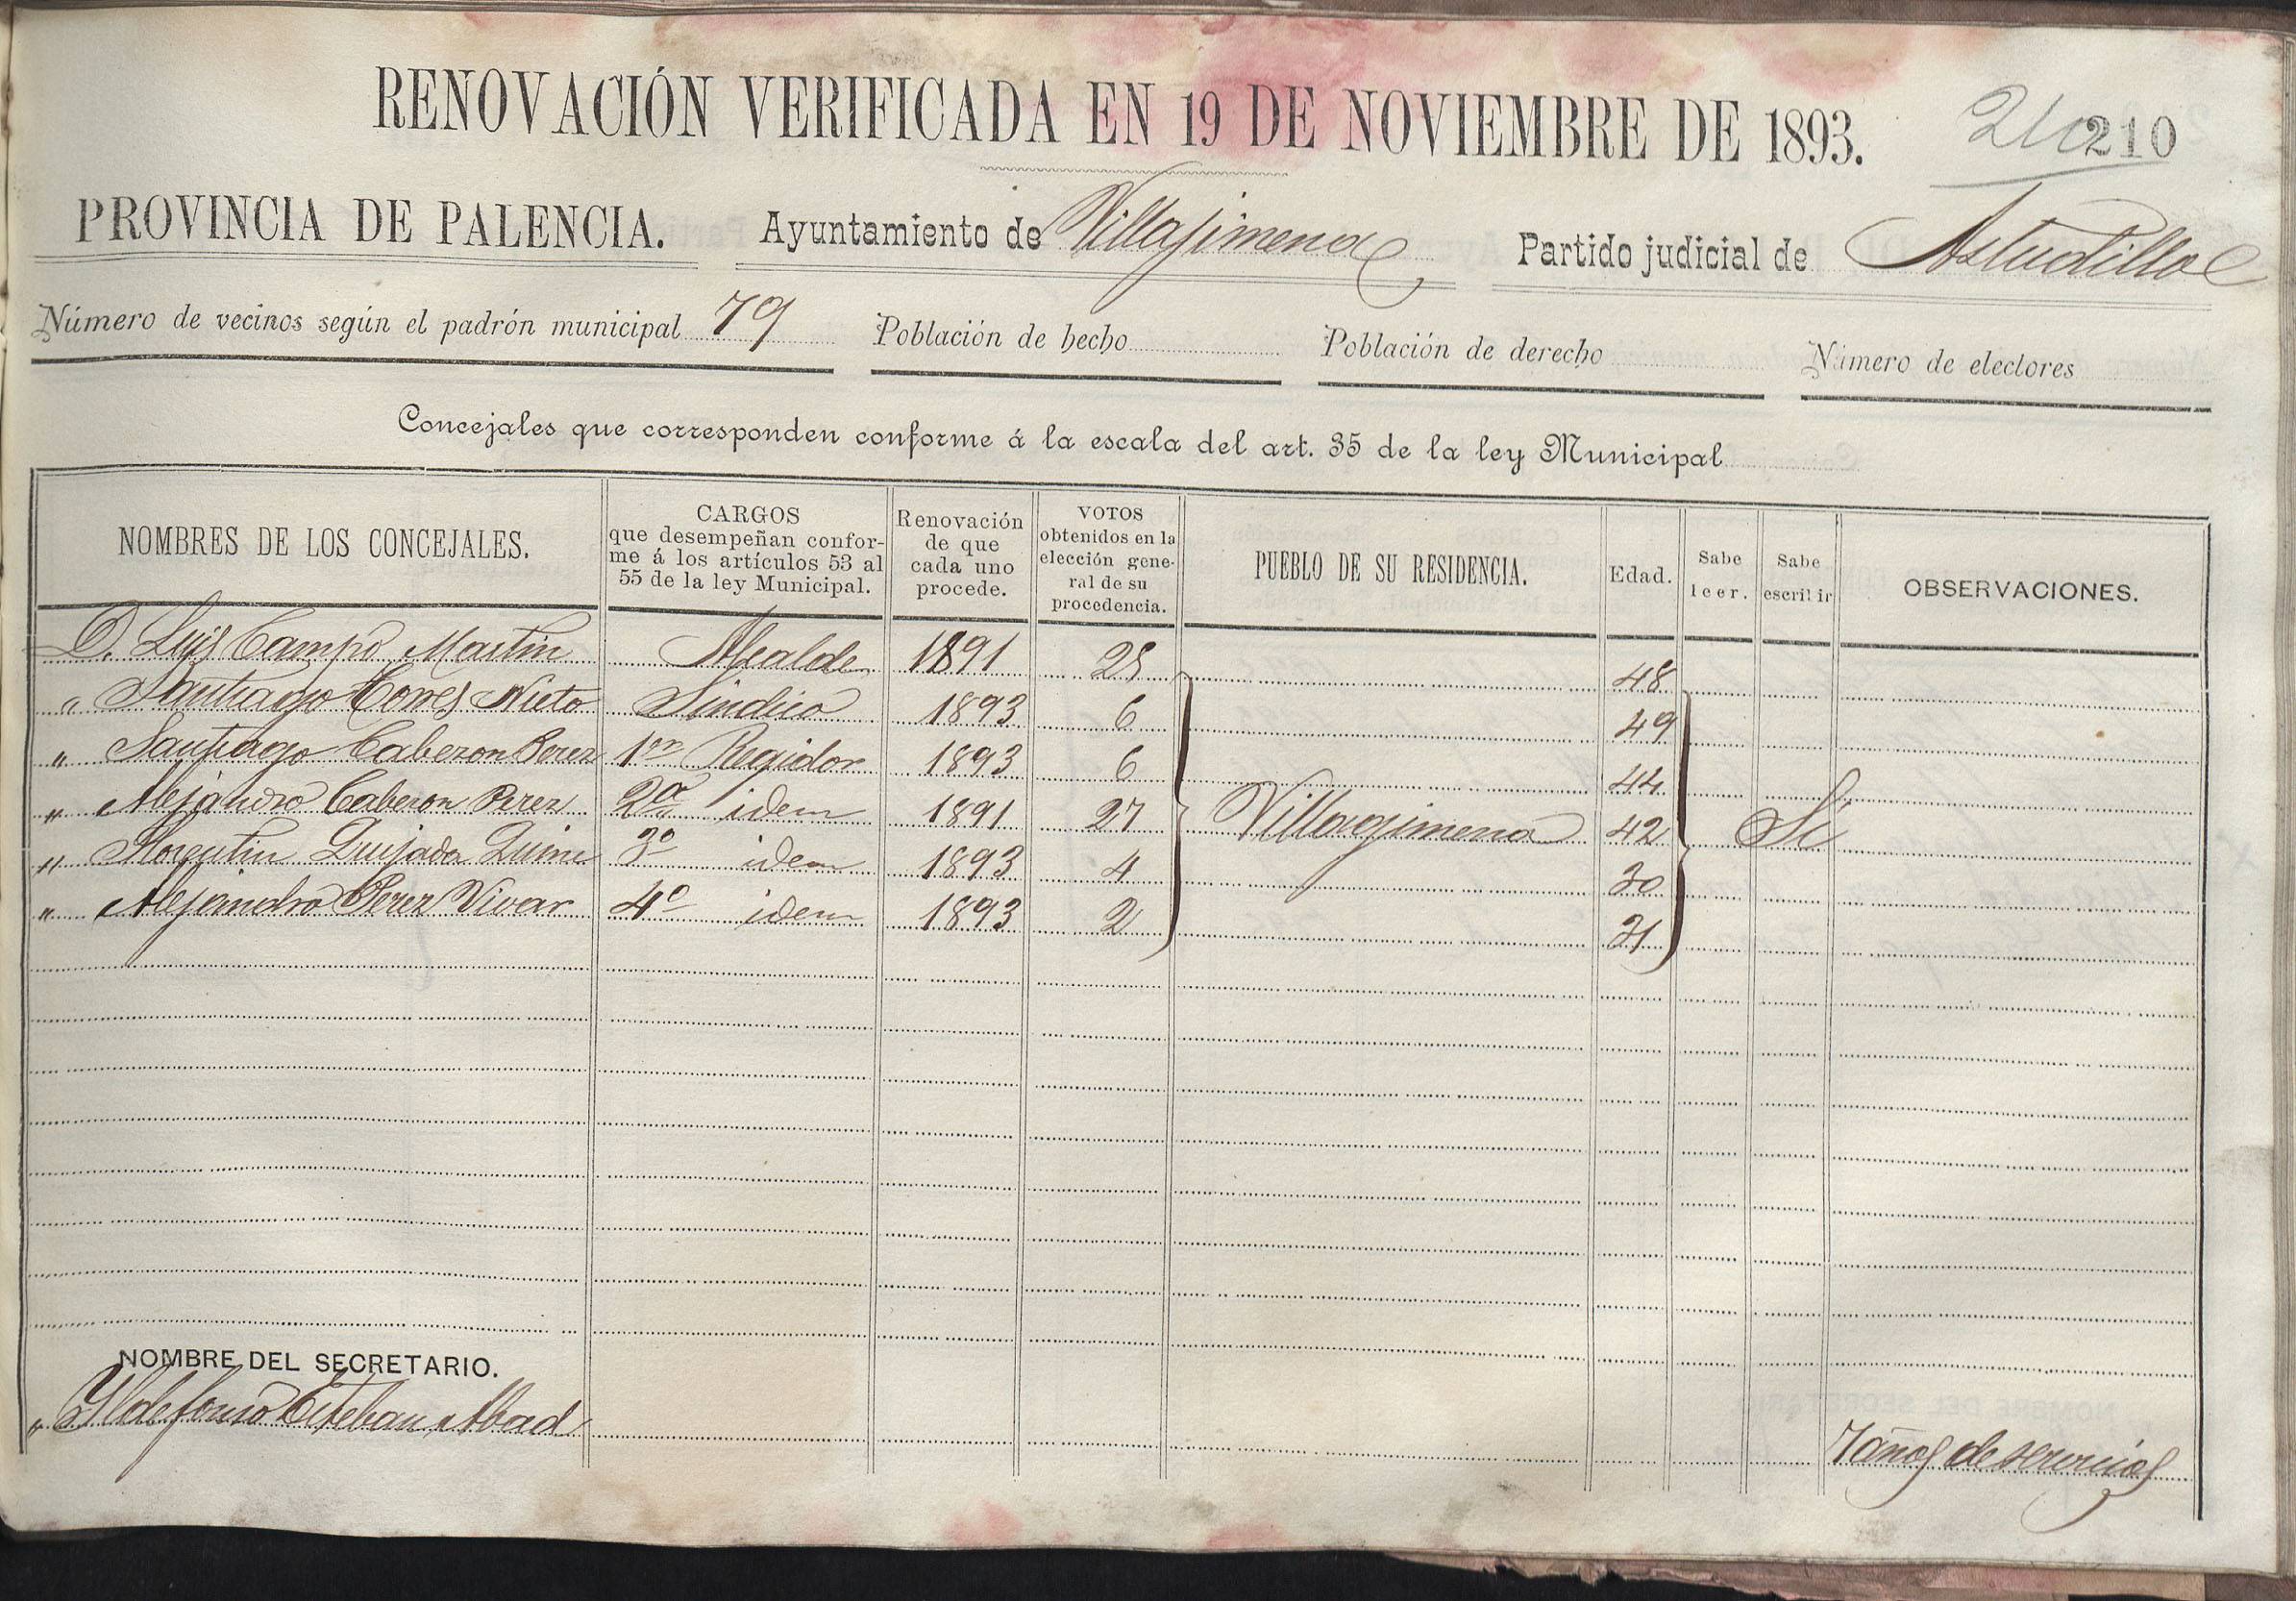 RENOVACIÓN VERIFICADA EN 19 DE NOVIEMBRE DE 1893. 210 210
PROVINCIA DE PALENCIA. Ayuntamiento de Villajimena Partido judicial de Astudillo
Número de vecinos según el padrón municipal 79 Población de hecho Población de derecho Número de electores
Concejales que corresponden conforme á la escala del art. 35 de la ley Municipal
NOMBRES DE LOS CONCEJALES.
CARGOS
que desempeñan confor-
me á los artículos 53 al
55 de la ley Municipal.
Renovación
de que
cada uno
procede.
VOTOS
obtenidos en la
elección gene-
ral de su
procedencia.
PUEBLO DE SU RESIDENCIA.
Edad.
Sabe
leer.
Sabe
escribir
OBSERVACIONES.
D. Luis Campo Martin Alcalde 1891 28 48
" Santiago Torres Nieto Sindico 1893 6 49
" Santiago Caberon Perez 1er Regidor 1893 6 44
" Alejandro Caberon Perez 2º idem 1891 27 Villajimena 42 Si
" Florentin Quijada 3º idem 1893 4 30
" Alejandro Perez Vivar 4º idem 1893 2 31
NOMBRE DEL SECRETARIO.
" Yldefonso Esteban Abad 7 años de servicios